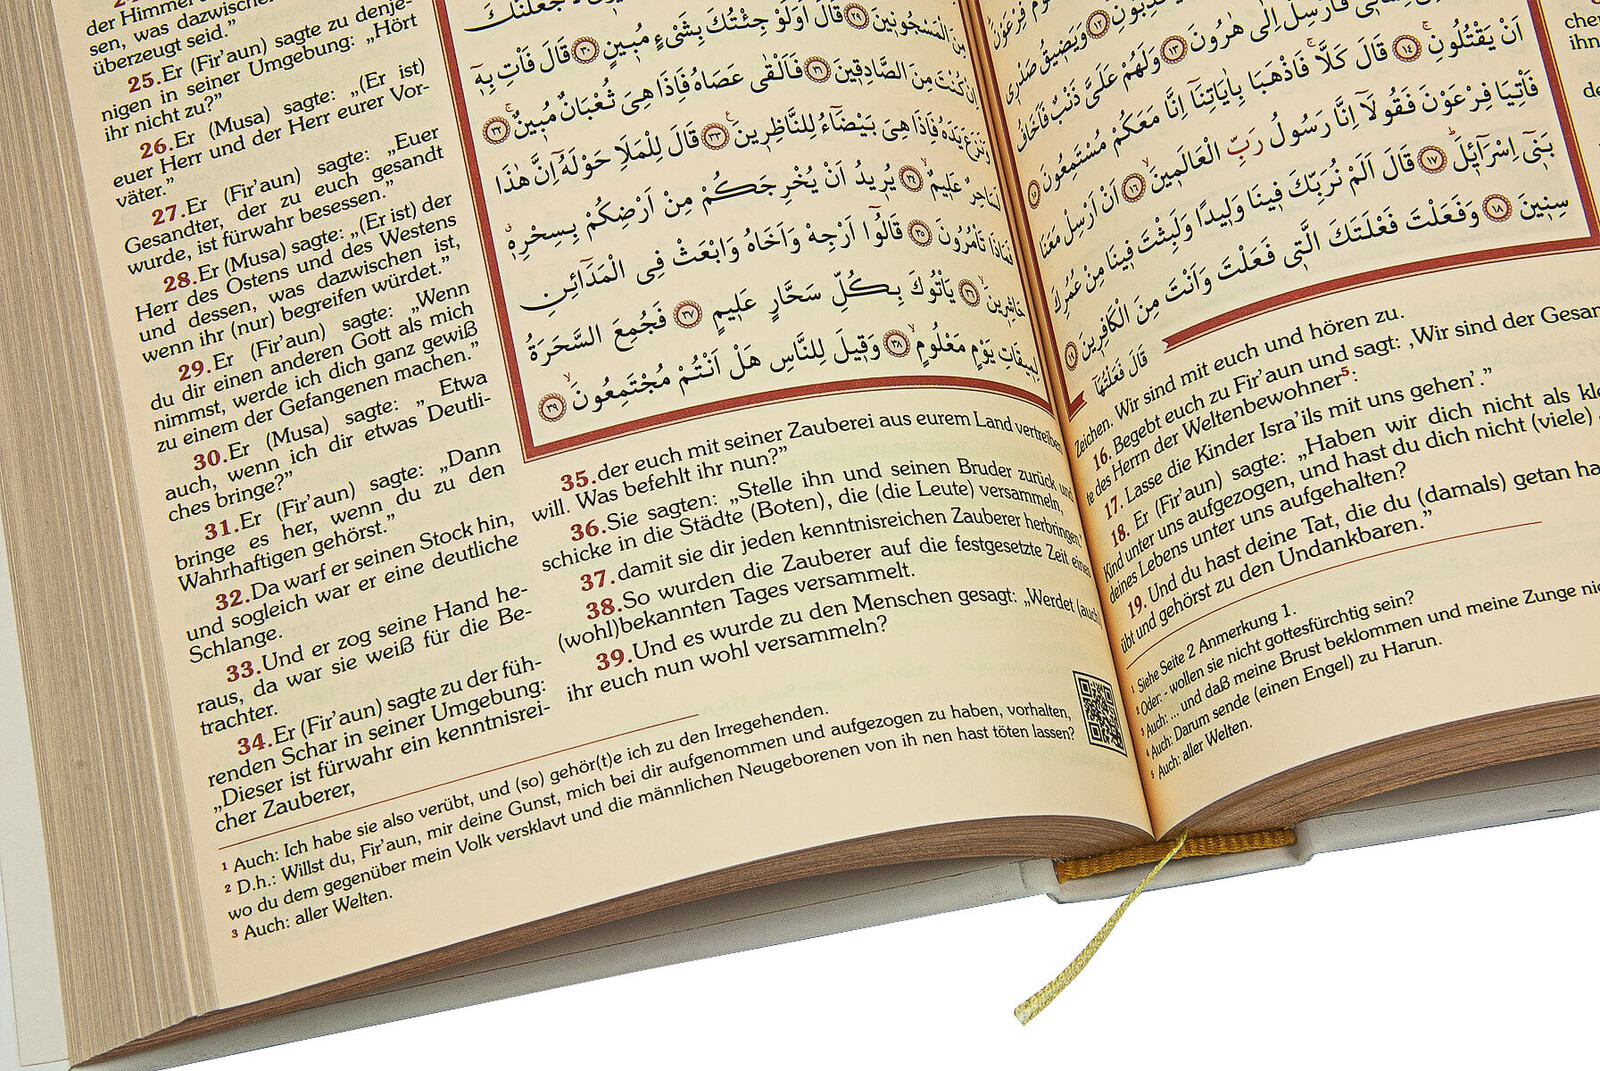 der Himmel
sen, was dazwischen
überzeugt seid.”
25.Er (Fir’aun) sagte zu denje-
nigen in seiner Umgebung: „Hört
ihr nicht zu?”
26.Er (Musa) sagte: „(Er ist)
euer Herr und der Herr eurer Vor-
väter.”
27.Er (Fir’aun) sagte: „Euer
Gesandter, der zu euch gesandt
wurde, ist fürwahr besessen.”
28.Er (Musa) sagte: „(Er ist) der
Herr des Ostens und des Westens
und dessen, was dazwischen ist,
wenn ihr (nur) begreifen würdet.”
29.Er (Fir’aun) sagte: „Wenn
du dir einen anderen Gott als mich
nimmst, werde ich dich ganz gewiß
zu einem der Gefangenen machen.”
30.Er (Musa) sagte: „ Etwa
auch, wenn ich dir etwas Deutli-
ches bringe?”
31.Er (Fir’aun) sagte: „Dann
bringe es her, wenn du zu den
Wahrhaftigen gehörst.”
32.Da warf er seinen Stock hin,
und sogleich war er eine deutliche
Schlange.
33.Und er zog seine Hand he-
raus, da war sie weiß für die Be-
trachter.
34.Er (Fir’aun) sagte zu der füh-
renden Schar in seiner Umgebung:
„Dieser ist fürwahr ein kenntnisrei-
cher Zauberer,
مِنَ الْمَسْجُونِينَ ﴿٢٩﴾ قَالَ اَوَلَوْ جِئْتُكَ بِشَيْءٍ مُبِينٍ ﴿٣٠﴾ قَالَ فَأْتِ بِهِ
اِنْ كُنْتَ مِنَ الصَّادِقِينَ ﴿٣١﴾ فَاَلْقٰى عَصَاهُ فَاِذَا هِيَ ثُعْبَانٌ مُبِينٌ ﴿٣٢﴾
وَنَزَعَ يَدَهُ فَاِذَا هِيَ بَيْضَاءُ لِلنَّاظِرِينَ ﴿٣٣﴾ قَالَ لِلْمَلَاِ حَوْلَهُ اِنَّ هٰذَا
لَسَاحِرٌ عَلِيمٌ ﴿٣٤﴾ يُرِيدُ اَنْ يُخْرِجَكُمْ مِنْ اَرْضِكُمْ بِسِحْرِهِ
فَمَاذَا تَأْمُرُونَ ﴿٣٥﴾ قَالُوا اَرْجِهْ وَاَخَاهُ وَابْعَثْ فِي الْمَدَائِنِ
حَاشِرِينَ ﴿٣٦﴾ يَأْتُوكَ بِكُلِّ سَحَّارٍ عَلِيمٍ ﴿٣٧﴾ فَجُمِعَ السَّحَرَةُ
لِمِيقَاتِ يَوْمٍ مَعْلُومٍ ﴿٣٨﴾ وَقِيلَ لِلنَّاسِ هَلْ اَنْتُمْ مُجْتَمِعُونَ ﴿٣٩﴾
35.der euch mit seiner Zauberei aus eurem Land vertreiben
will. Was befehlt ihr nun?”
36.Sie sagten: „Stelle ihn und seinen Bruder zurück und
schicke in die Städte (Boten), die (die Leute) versammeln,
37.damit sie dir jeden kenntnisreichen Zauberer herbringen.”
38.So wurden die Zauberer auf die festgesetzte Zeit eines
(wohl)bekannten Tages versammelt.
39.Und es wurde zu den Menschen gesagt: „Werdet (auch)
ihr euch nun wohl versammeln?
1 Auch: Ich habe sie also verübt, und (so) gehör(t)e ich zu den Irregehenden.
2 D.h.: Willst du, Fir’aun, mir deine Gunst, mich bei dir aufgenommen und aufgezogen zu haben, vorhalten,
wo du dem gegenüber mein Volk versklavt und die männlichen Neugeborenen von ih nen hast töten lassen?
3 Auch: aller Welten.
اَنْ يَقْتُلُونِ ﴿١٤﴾ قَالَ كَلَّا فَاذْهَبَا بِاٰيَاتِنَا اِنَّا مَعَكُمْ مُسْتَمِعُونَ ﴿١٥﴾
فَأْتِيَا فِرْعَوْنَ فَقُولَا اِنَّا رَسُولُ رَبِّ الْعَالَمِينَ ﴿١٦﴾ اَنْ اَرْسِلْ مَعَنَا
بَنِي اِسْرَائِيلَ ﴿١٧﴾ قَالَ اَلَمْ نُرَبِّكَ فِينَا وَلِيدًا وَلَبِثْتَ فِينَا مِنْ عُمُرِكَ
سِنِينَ ﴿١٨﴾ وَفَعَلْتَ فَعْلَتَكَ الَّتِي فَعَلْتَ وَاَنْتَ مِنَ الْكَافِرِينَ ﴿١٩﴾
قَالَ فَعَلْتُهَا
Zeichen. Wir sind mit euch und hören zu.
16. Begebt euch zu Fir’aun und sagt: ‚Wir sind der Gesan
te des Herrn der Weltenbewohner5:
17. Lasse die Kinder Isra’ils mit uns gehen’.”
18. Er (Fir’aun) sagte: „Haben wir dich nicht als
Kind unter uns aufgezogen, und hast du dich nicht (viele)
deines Lebens unter uns aufgehalten?
19. Und du hast deine Tat, die du (damals) getan
übt und gehörst zu den Undankbaren.”
1 Siehe Seite 2 Anmerkung 1.
2 Oder: - wollen sie nicht gottesfürchtig sein?
3 Auch: ... und daß meine Brust beklommen und meine Zunge
4 Auch: Darum sende (einen Engel) zu Harun.
5 Auch: aller Welten.